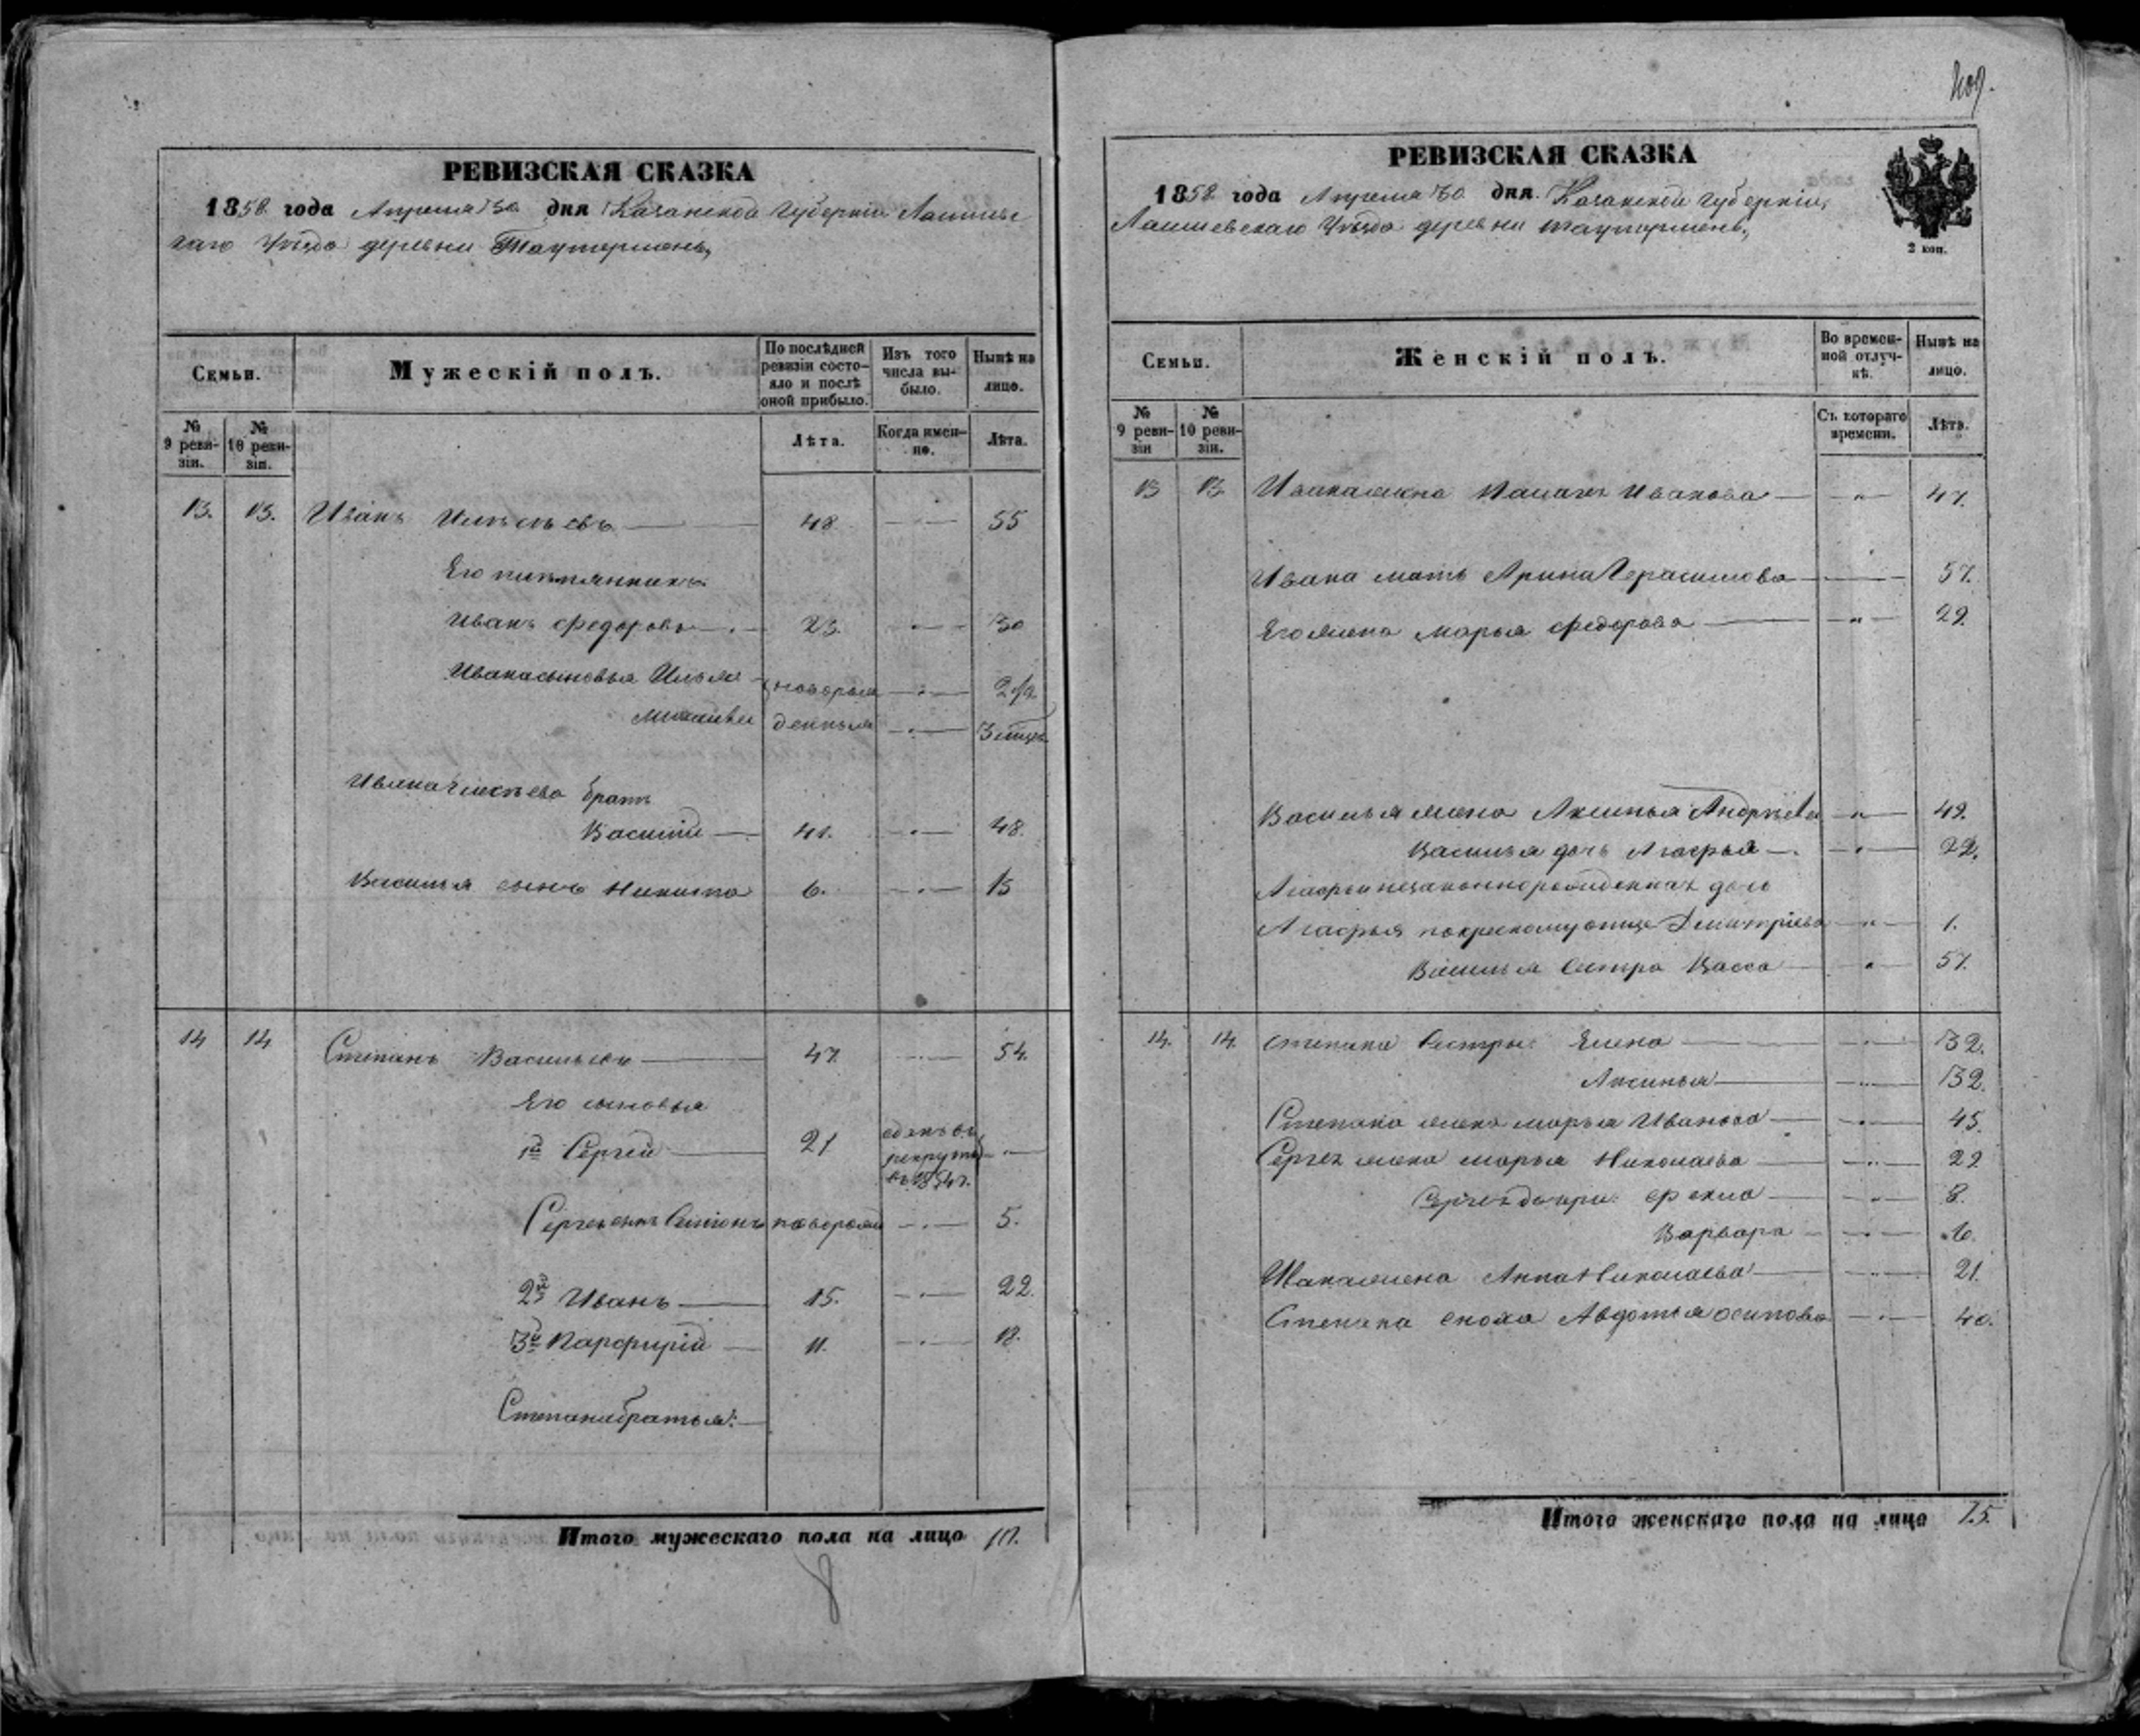 РЕВИЗСКАЯ СКАЗКА
1858 года Апреля 30 дня Казанской Губерніи Лаишевс
каго Уѣзда деревни Таутермень,
Семьи.
Мужескій полъ.
По послѣдней ревизіи состояло и послѣ оной прибыло.
Изъ того числа выбыло.
Нынѣ на лицо.
№ 9 ревизіи.
№ 10 ревизіи.
Лѣта.
Когда именно.
Лѣта.
13. 13. Иванъ 48 55
Его племянникъ
Иванъ Федоровъ 23. 30
Ивана сыновья Илья новорож 2 1/2
денныя
Ивана брат
Василій 41. 48.
Василья сынъ Никита 6. 13
14 14 Степанъ Васильевъ 47. 54.
Его сыновья
1й Сергій 21 сданъ въ рекруты въ 1854 г.
Сергея сынъ новорож 5.
2й Иванъ 15. 22.
3й Парфирій 11. 18.
Степана братья:
Итого мужескаго пола на лицо 10.
409.
РЕВИЗСКАЯ СКАЗКА
1858 года Апреля 30 дня. Казанской губерніи,
Лаишевскаго Уѣзда деревни таутермень,
2 коп.
Семьи.
Женскій полъ.
Во временной отлучкѣ.
Нынѣ на лицо.
№ 9 ревизіи
№ 10 ревизіи.
Съ котораго времени.
Лѣта.
13 13. Ивана жена Иванова 47.
Ивана мать Арина Герасимова 57.
Его жена Марья Федорова 29.
Василья жена Аксинья Андрѣева 49.
Василья дочь Агафья 22.
Агафьи незаконнорожденная дочь
Агафья по крестному отцу Дмитріева 1.
Василья сестра Васса 57.
14. 14. Степана сестры: Елена 32.
Аксинья 32.
Степана жена марья Иванова 45.
Сергея жена марья Николаева 29.
Сергея дочери: Фекла 8.
Варвара 6.
Ивана жена Анна Николаева 21.
Степана сноха Авдотья осипова 40.
Итого женскаго пола на лицо 15.